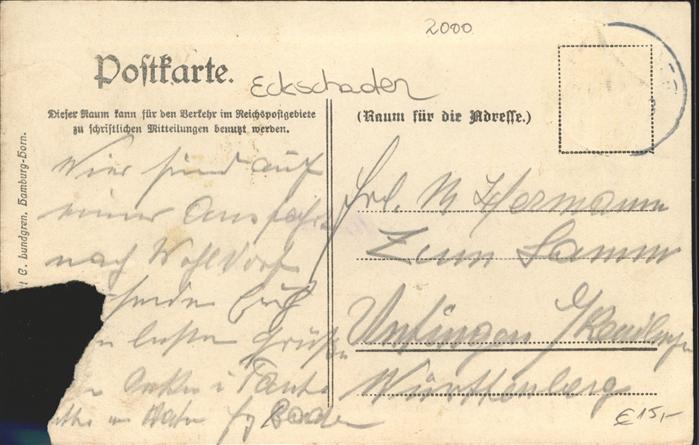 2000
Postkarte.
Eckschaden
Dieser Raum kann für den Verkehr im Reichspostgebiete
zu schriftlichen Mitteilungen benutzt werden.
(Raum für die Adresse.)
C. Lundgren. Hamburg-Horn.
Wir sind auf
einer Ausfahrt
nach Wohldorf
senden Euch
besten Grüße
Onkel u Tante
Frl. M Hermann
Zum Lamm
Württenberg
€ 15,-